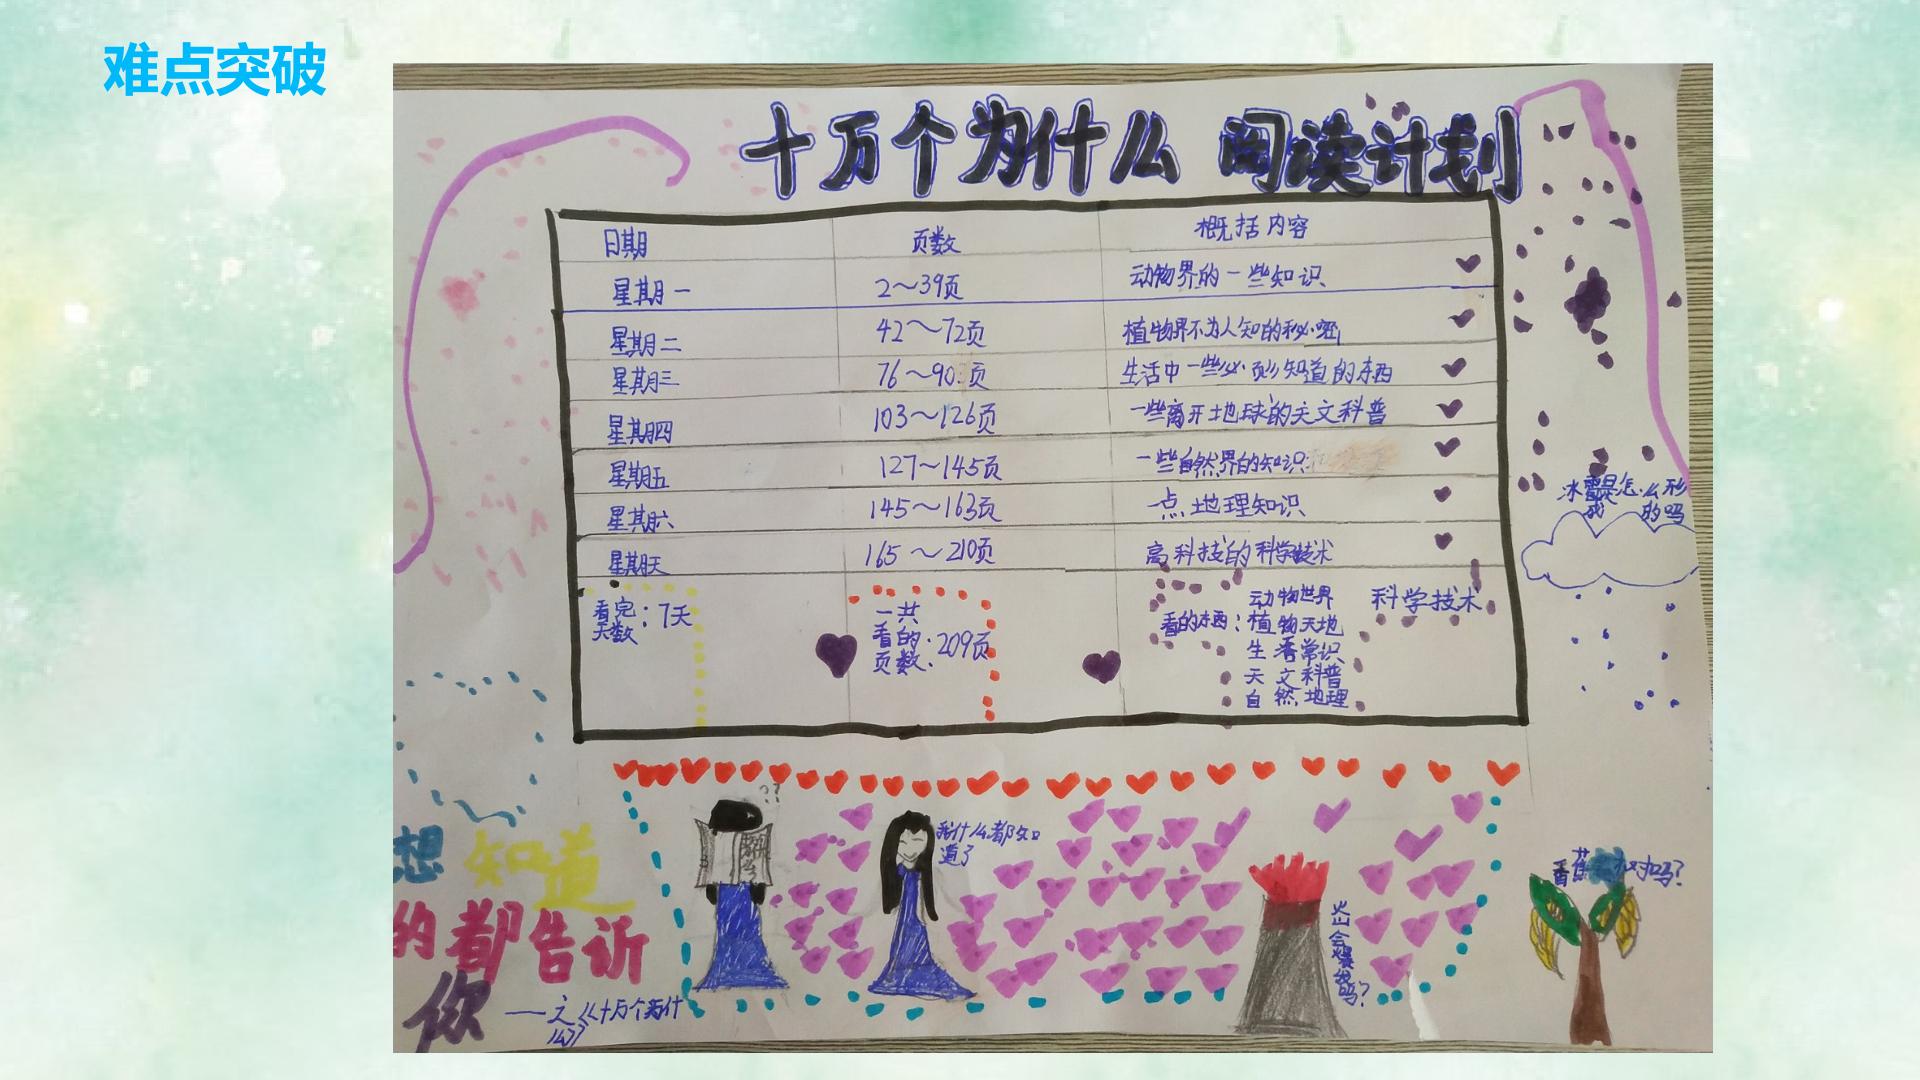 难点突破
十万个为什么 阅读计划
日期 页数 概括内容
星期一 2～39页 动物界的一些知识
星期二 42～72页 植物界不为人知的秘密
星期三 76～90页 生活中一些必须知道的东西
星期四 103～126页 一些离开地球的天文科普
星期五 127～145页 一些自然界的知识
星期六 145～163页 一点地理知识
星期天 165～210页 高科技的科学技术
看完天数：7天
一共
看的
页数：209页
看的东西：
动物世界 科学技术
植物天地
生活常识
天文科普
自然地理
冰雹是怎么形
成的吗
想知道
的都告诉
你
《十万个为什
么》
我什么都知
道了
火山会爆发吗?
香蕉
吗?